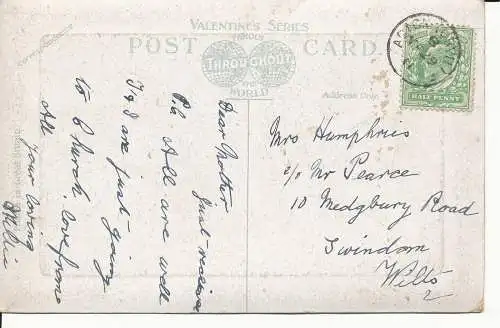 VALENTINE'S SERIES
FAMOUS
POST CARD
THROUGHOUT
THE
WORLD
Address Only
HALF PENNY
ACTON
Dear Mother
Just received
P.c. All are well
I & J are just going
to Church love from
All
Your loving
Nellie
Mrs Humphries
c/o Mr Pearce
10 Medgbury Road
Swindon
Wilts